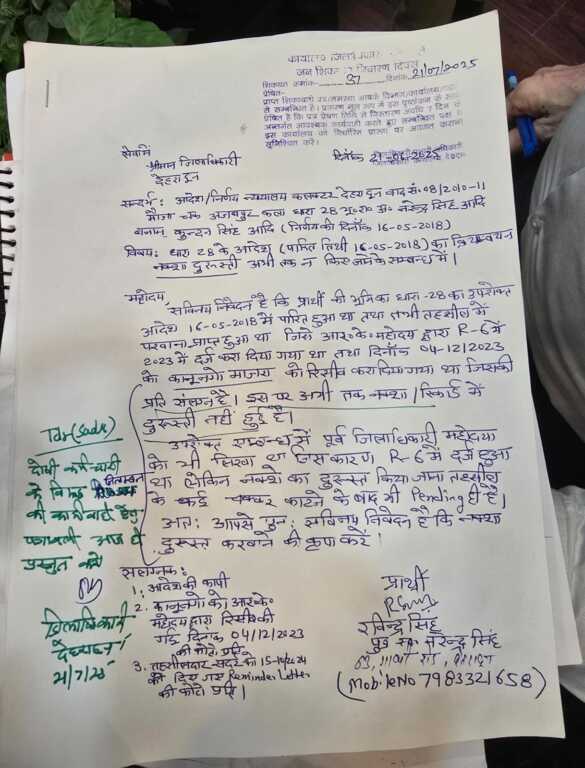 कार्यालय जिला
जन शिकायत निवारण दिवस
शिकायत क्रमांक 37 दिनांक 21/07/2025
प्रेषित-
सुनिश्चित करें।
सेवामें
श्रीमान जिलाधिकारी
देहरादून
दिनाँक 21-
सन्दर्भ: आदेश/निर्णय न्यायालय कलक्टर देहरादून वाद सं. 08/2010-11
मौजा चक अजबपुर कला धारा 28 भू.रा.अ. नरेन्द्र सिंह आदि
बनाम कुन्दन सिंह आदि (निर्णय की दिनाँक 16-05-2018)
विषय: धारा 28 के आदेश (पारित तिथी 16-05-2018) का क्रियान्वयन
नक्शा दुरूस्ती अभी तक न किए जाने के सम्बन्ध में।
महोदय,
सविनय निवेदन है कि प्रार्थी की भूमि का धारा-28 का उपरोक्त
आदेश 16-05-2018 में पारित हुआ था तथा तभी तहसील में
परवाना प्राप्त हुआ था जिसे आर०के० महोदय द्वारा R-6 में
2023 में दर्ज करा दिया गया था तथा दिनाँक 04-12/2023
को कानूनगो माजरा को रिसीव करा दिया गया था जिसकी
प्रति संलग्न है। इस पर अभी तक नक्शा/रिकार्ड में
दुरूस्ती नहीं हुई है।
उपरोक्त सम्बन्ध में पूर्व जिलाधिकारी महोदया
को भी लिखा था जिस कारण R-6 में दर्ज हुआ
था लेकिन नक्शे का दुरूस्त किया जाना तहसील
के कई चक्कर काटने के बाद भी Pending ही है।
अत: आपसे पुन: सविनय निवेदन है कि नक्शा
दुरूस्त करवाने की कृपा करें।
Tdr (Sadr)
दोषी कर्मचारी
के विरूद्ध निलम्बन
की कार्यवाही हेतु
पत्रावली आज ही
प्रस्तुत करें
जिलाधिकारी
देहरादून
21/7/25
संलग्नक:
1. आदेश की कापी
2. कानूनगो को आर०के०
महोदय द्वारा रिसीव की
गई दिनाँक 04/12/2023
की फोटो प्रति
3. तहसीलदार सदर को 15-10/2024
को दिए गए Reminder Letter
की फोटो प्रति।
प्रार्थी
रविन्द्र सिंह
पुत्र स्व० नरेन्द्र सिंह
(Mobile No 7983321658)